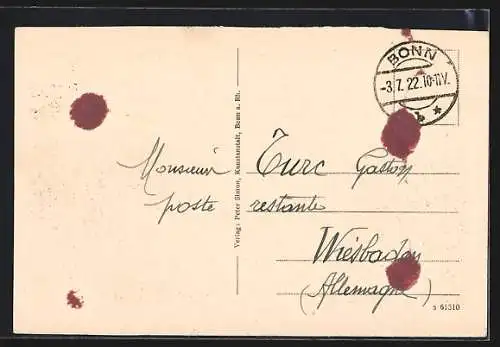 BONN
-3.7.22.10-11V.
Monsieur Turc Gaston
poste restante
Wiesbaden
(Allemagne)
Verlag: Peter Stoone, Kunstanstalt, Bonn a. Rh.
s 61310